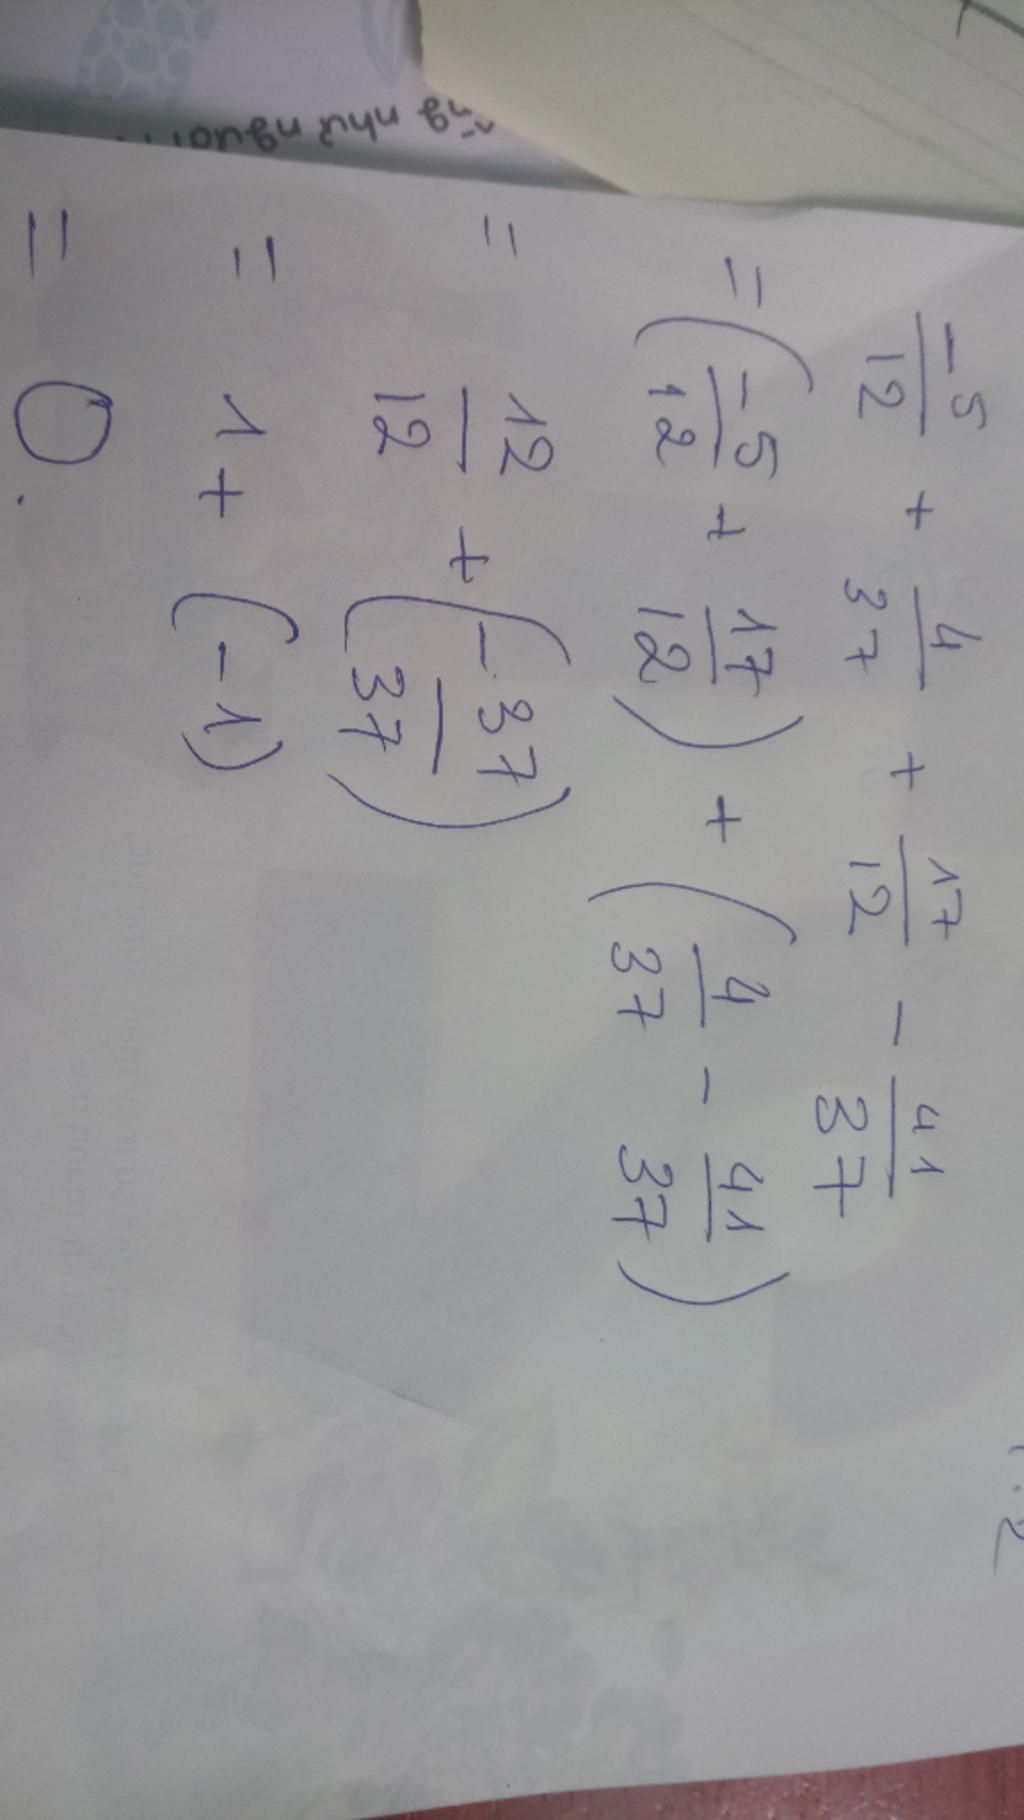 -5/12 + 4/37 + 17/12 - 41/37
= (-5/12 + 17/12) + (4/37 - 41/37)
= 12/12 + (-37/37)
= 1 + (-1)
= 0.
như người